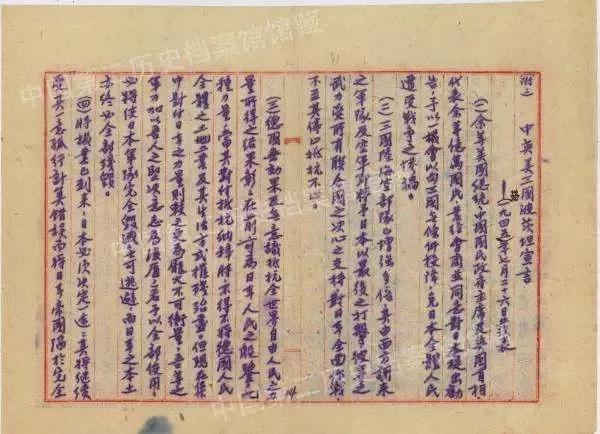 附二 中英美三國波茨坦宣言
(一九四五年七月二十六日發表)
(一)余等美國總統、中國國民政府主席及英國首相,
代表余等億萬國民,業經會商並同意對日本提出勸
告,予以機會,以向三國無條件投降,免日本全體人民
遭受戰爭之慘禍。
(二)三國陸海空部隊已增強多倍,其由西方調來
之軍隊及空軍即將予日本以最後之打擊,彼等之
武力受所有聯合國之決心之支持,對日本全面作戰,
不至其停止抵抗不止。
14
(三)德國無効果及無意識抵抗全世界自由人民之力
量所得之結果,彰彰在前,可為日本人民之殷鑒,此
種力量當其對付抵抗納粹時,不得不將德國人民
全體之土地工業及其生活方式摧殘殆盡,但現在集
中對付日本之力量則較之更為龐大不可衡量,吾等之
軍力加以吾人之堅決意志為後盾,若予以全部使用,
必將使日本軍隊完全毀滅,無可逃避,而日本之本土
亦終必全部殘毀。
(四)時機業已到來,日本必須決定一途,其將繼續
受其一意孤行計算錯誤而將日本帝國陷於完全
中国第二历史档案馆馆藏
中国第二历史档案馆馆藏